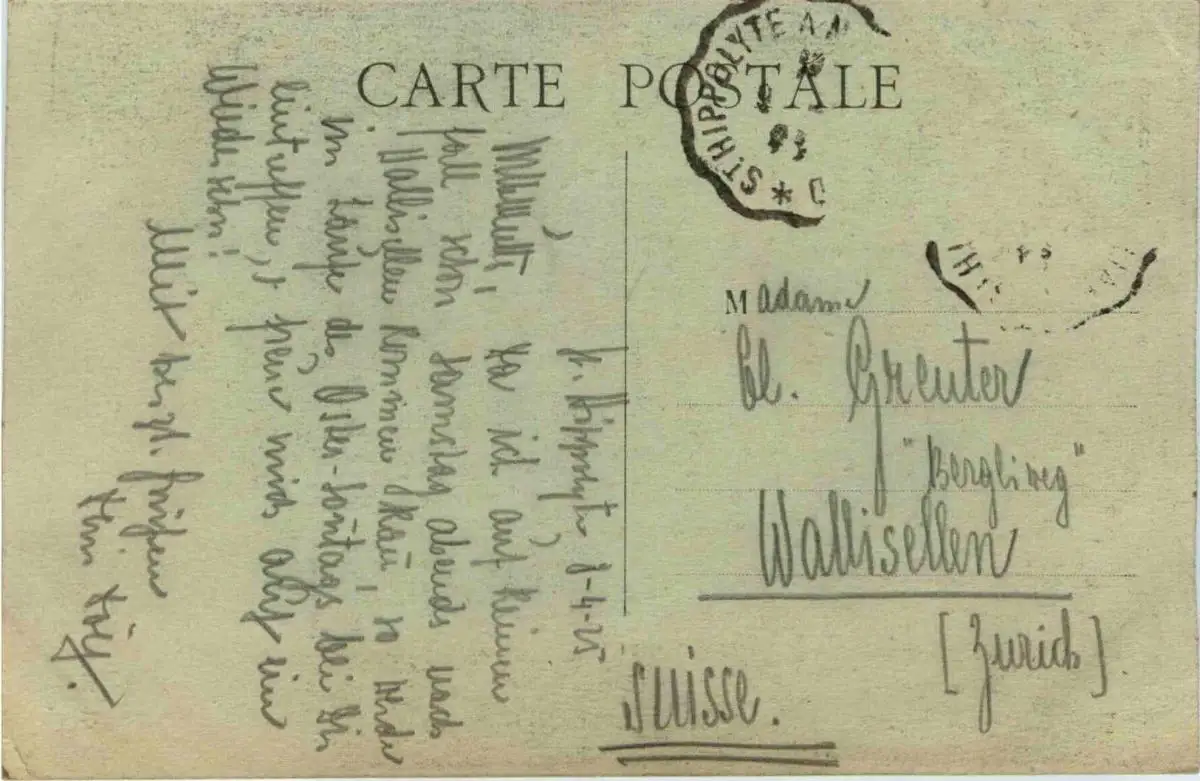 CARTE POSTALE
ST HIPPOLYTE
St. Hippolyte, 8-4-25
Da ich auf keinen
Fall schon Samstag abends nach
Wallisellen kommen kann, so werde
im Laufe des Oster-Sonntags bei Dir
eintreffen, & freue mich auf ein
Wiedersehn!
Mit herzl. Grüssen
Dein
Madame
Cl. Greuter
"Bergliweg"
Wallisellen
[Zürich].
SUISSE.